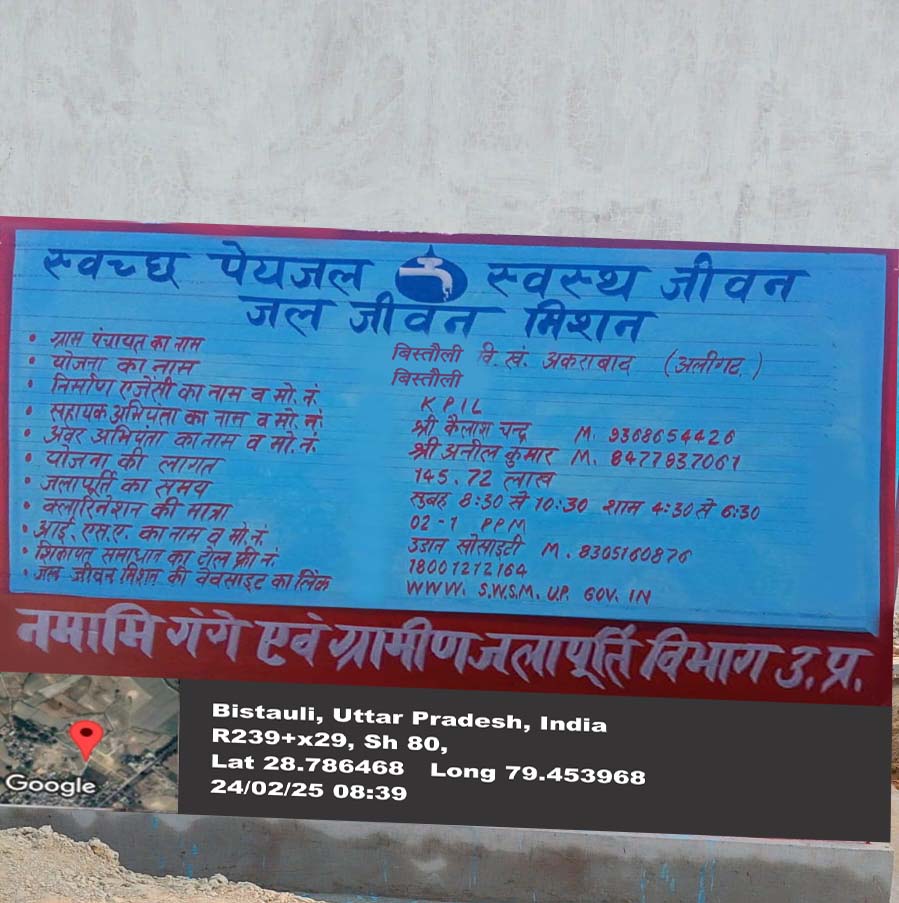 स्वच्छ पेयजल स्वस्थ जीवन
जल जीवन मिशन
• ग्राम पंचायत का नाम बिस्तौली वि. खं. अकराबाद (अलीगढ़)
• योजना का नाम बिस्तौली
• निर्माण एजेंसी का नाम व मो. नं. KPIL
• सहायक अभियंता का नाम व मो. नं. श्री कैलाश चन्द्र M. 9368654426
• अवर अभियंता का नाम व मो. नं. श्री अनील कुमार M. 8477937061
• योजना की लागत 145.72 लाख
• जलापूर्ति का समय सुबह 8:30 से 10:30 शाम 4:30 से 6:30
• क्लोरिनेशन की मात्रा 02-1 PPM
• आई. एस.ए. का नाम व मो. नं. उडान सोसाइटी M. 8305160876
• शिकायत समाधान का टोल फ्री नं. 18001212164
• जल जीवन मिशन की वेबसाइट का लिंक WWW. S.W.S.M. U.P. GOV. IN
नमामि गंगे एवं ग्रामीण जलापूर्ति विभाग उ.प्र.
Google
Bistauli, Uttar Pradesh, India
R239+x29, Sh 80,
Lat 28.786468 Long 79.453968
24/02/25 08:39